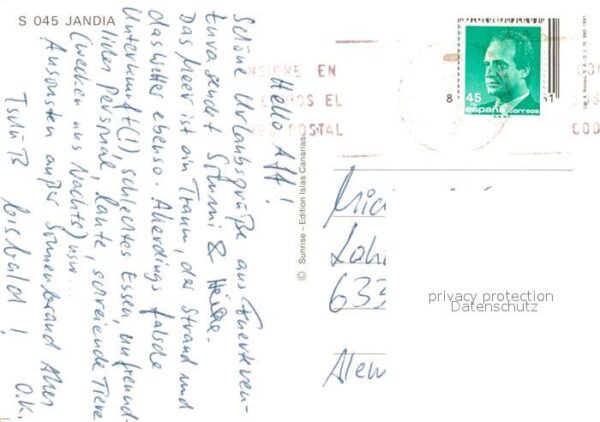 S 045 JANDIA
Hello Aff!
Schöne Urlaubsgrüße aus Fuerteven-
tura sendet Sturmi & Heike.
Das Meer ist ein Traum, der Strand und
das Wetter ebenso. Allerdings falsche
Unterkunft(!), schlechtes Essen, unfreund-
liches Personal, laute, schreiende Tiere
(wecken uns nachts) usw...
Ansonsten außer Sonnenbrand alles
O.K.
Tschüß bisbald!
© Sunrise – Edition Islas Canarias
NSIGNE EN
OS EL
POSTAL
COD
45
españa
correos
8
1
633
Alem
privacy protection
Datenschutz